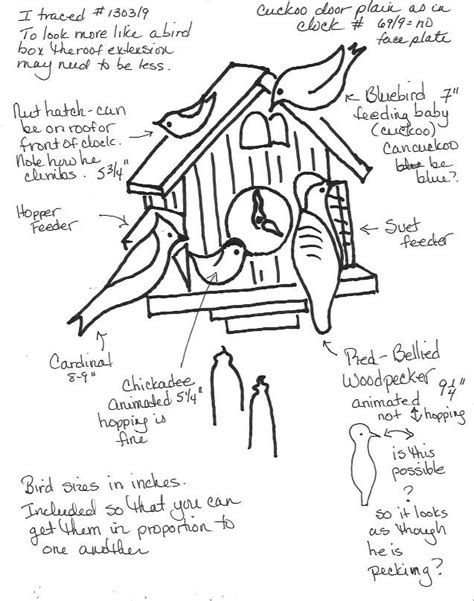 I traced #1303/9
To look more like a bird
box the roof extension
may need to be less.
Cuckoo door plain as in
clock # 69/9 = no
face plate
Nut hatch - can
be on roof or
front of clock.
Note how he
climbs. 5 3/4"
Bluebird 7"
feeding baby
(cuckoo)
Can cuckoo
be
blue?
Hopper
Feeder
Suet
feeder
Cardinal
8-9"
Chickadee
animated 5 1/4"
hopping is
fine
Red-Bellied
Woodpecker 9 1/4"
animated
not ↕ hopping
is this
possible
?
so it looks
as though
he is
pecking?
Bird sizes in inches.
Included so that you can
get them in proportion to
one another